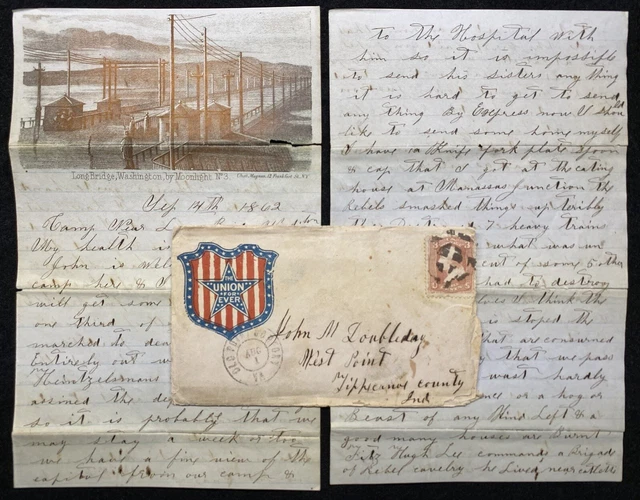 Long Bridge, Washington, by Moonlight. No 3.
Sep 14th 1862
Camp Near
My health is
John is well
camp her &
will get some
one third of
marched to
Entirely out
Heintzelmans
so it is probably that we
may stay a week or too
we have a fine view of the
capitol from our camp &
to the Hospital with
him so it is impossible
to send his sisters any thing
it is hard to get to send
any thing By Express now I should
like to send some home myself
I have a Knife fork plate spoon
& cup that I got at the eating
house at Manassas Junction the
Rebels smashed things up
7 heavy train
what was un
cut of some 5 other
had to destroy
I think the
is stoped the
that are consumed
that we pass
was hardly
or a hog or
Beast of any Kind Left & a
good many houses are Burnt
Fitz Hugh Lee commands a Brigade
of Rebel cavelry he Lived near
THE
UNION
FOR
EVER
OLD POINT COMFORT
AUG
1
VA
John M Doubleday
West Point
Tippecanoe county
Ind